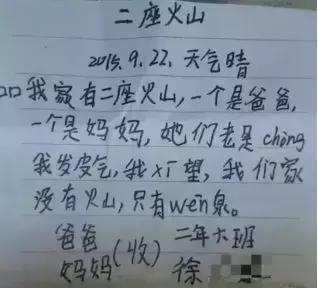 二座火山
2015.9.22.天气晴
我家有二座火山,一个是爸爸,
一个是妈妈,她们老是chòng
我发皮气,我XT望,我们家
没有火山,只有wēn泉。
爸爸 (收) 二年六班
妈妈 徐